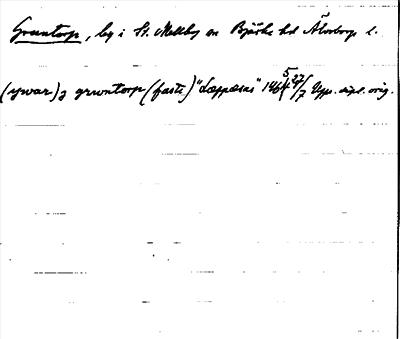 Gruntorp, by i St. Mellby sn Bjärke hd Älvsborgs l.
(ywar) j grwntorp (faste) "Læppæsas" 1464 5 27/7 Upps. dipl. orig.